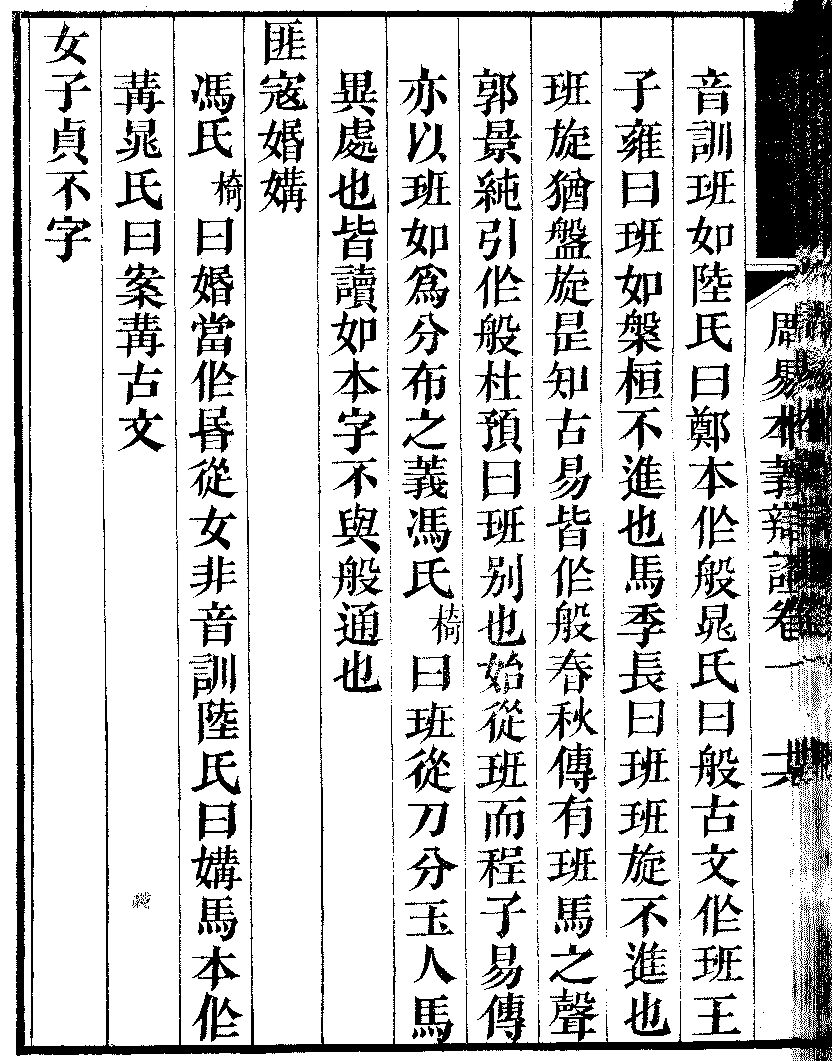 周易本義辯證卷一
音訓班如陸氏曰鄭本作般晁氏曰般古文作班王
子雍曰班如槃桓不進也馬季長曰班班旋不進也
班旋猶盤旋是知古易皆作般春秋傳有班馬之聲
郭景純引作般杜預曰班别也始從班而程子易傳
亦以班如爲分布之義馮氏椅曰班從刀分玉人馬
異處也皆讀如本字不與般通也
匪寇婚媾
馮氏椅曰婚當作昬從女非音訓陸氏曰媾馬本作
冓晁氏曰案冓古文
女子貞不字